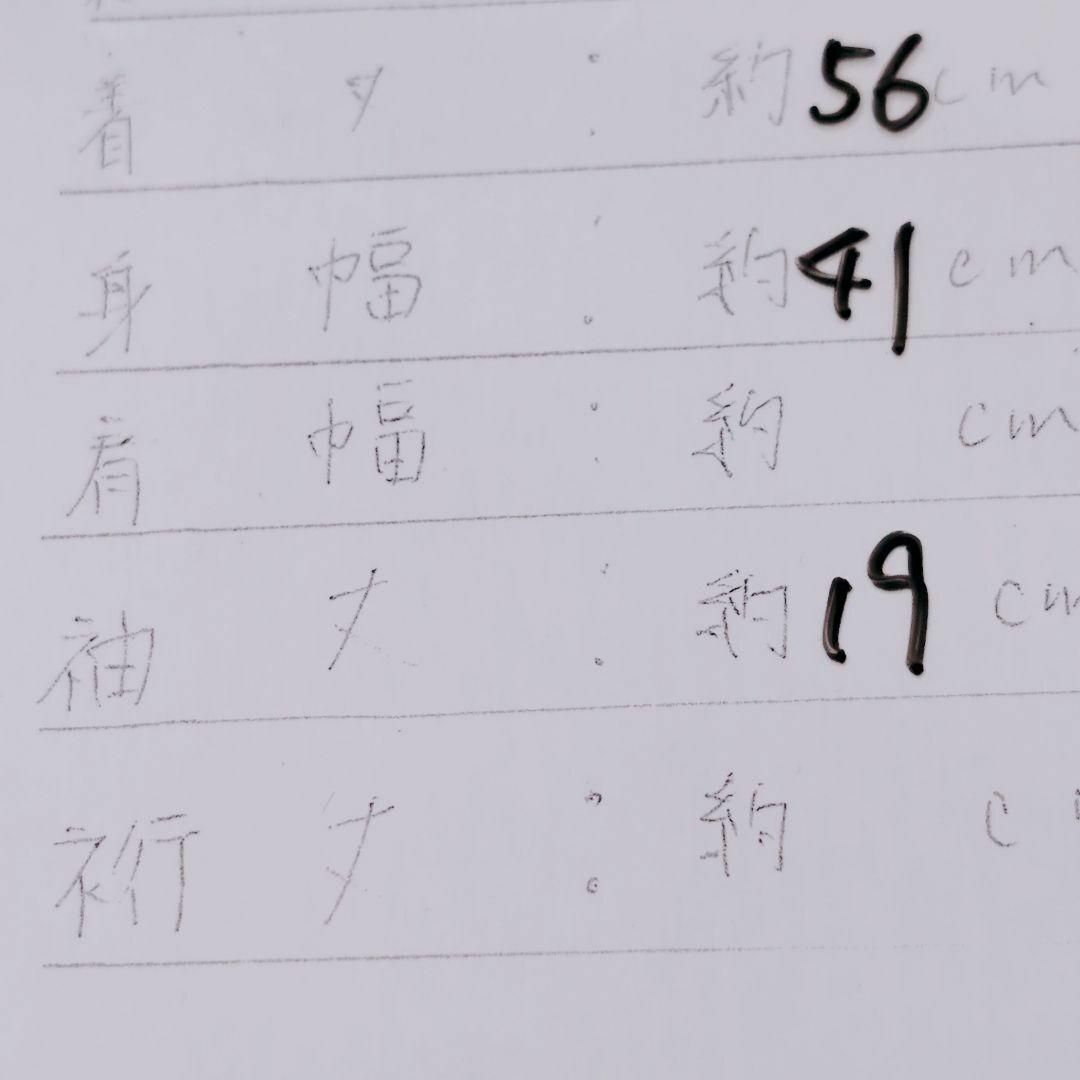 着丈:約56cm
身幅:約41cm
肩幅:約 cm
袖丈:約19cm
裄丈:約 c